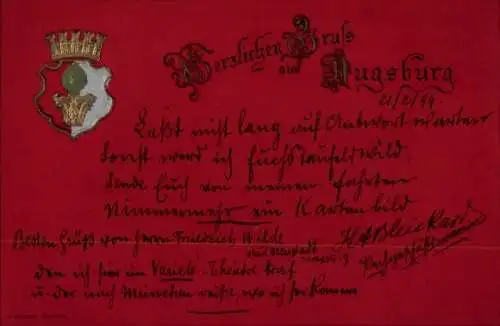 Herzlichen Gruss
aus
Augsburg
21/2/99.
Laßt mich lang auf Antwort warten
Sonst werd ich fuchsteufelswild
Sende Euch von meinen Fahrten
Nimmermehr ein Kartenbild
Besten Gruß von Herrn Friedrich Wilde
den ich hier im Varieté-Theater traf
u. der nach München reist, wo ich herkomme